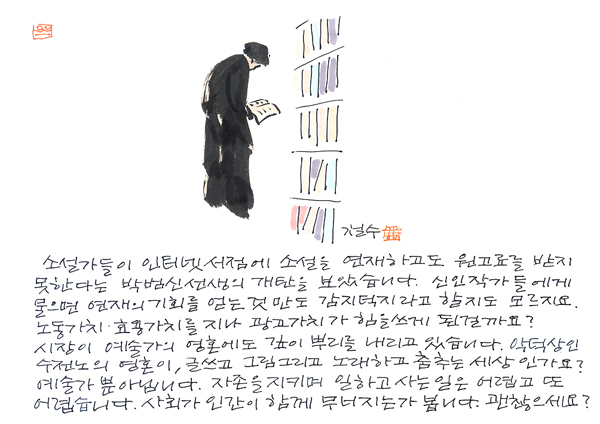 기철수
소설가들이 인터넷서점에 소설을 연재하고도 원고료를 받지
못한다는 박범신선생의 개탄을 보았습니다. 신인작가들에게
물으면 연재의 기회를 얻는것만도 감지덕지라고 할지도 모르지요.
노동가치·효용가치를 지나 광고가치가 힘을쓰게 된걸까요?
시장이 예술가의 영혼에도 깊이 뿌리를 내리고 있습니다. 악덕상인
수전노의 영혼이, 글쓰고 그림그리고 노래하고 춤추는 세상인가요?
예술가 뿐아닙니다. 자존을지키며 일하고 사는일은 어렵고 또
어렵습니다. 사회가 인간이 함께 무너지는가 봅니다. 괜찮으세요?